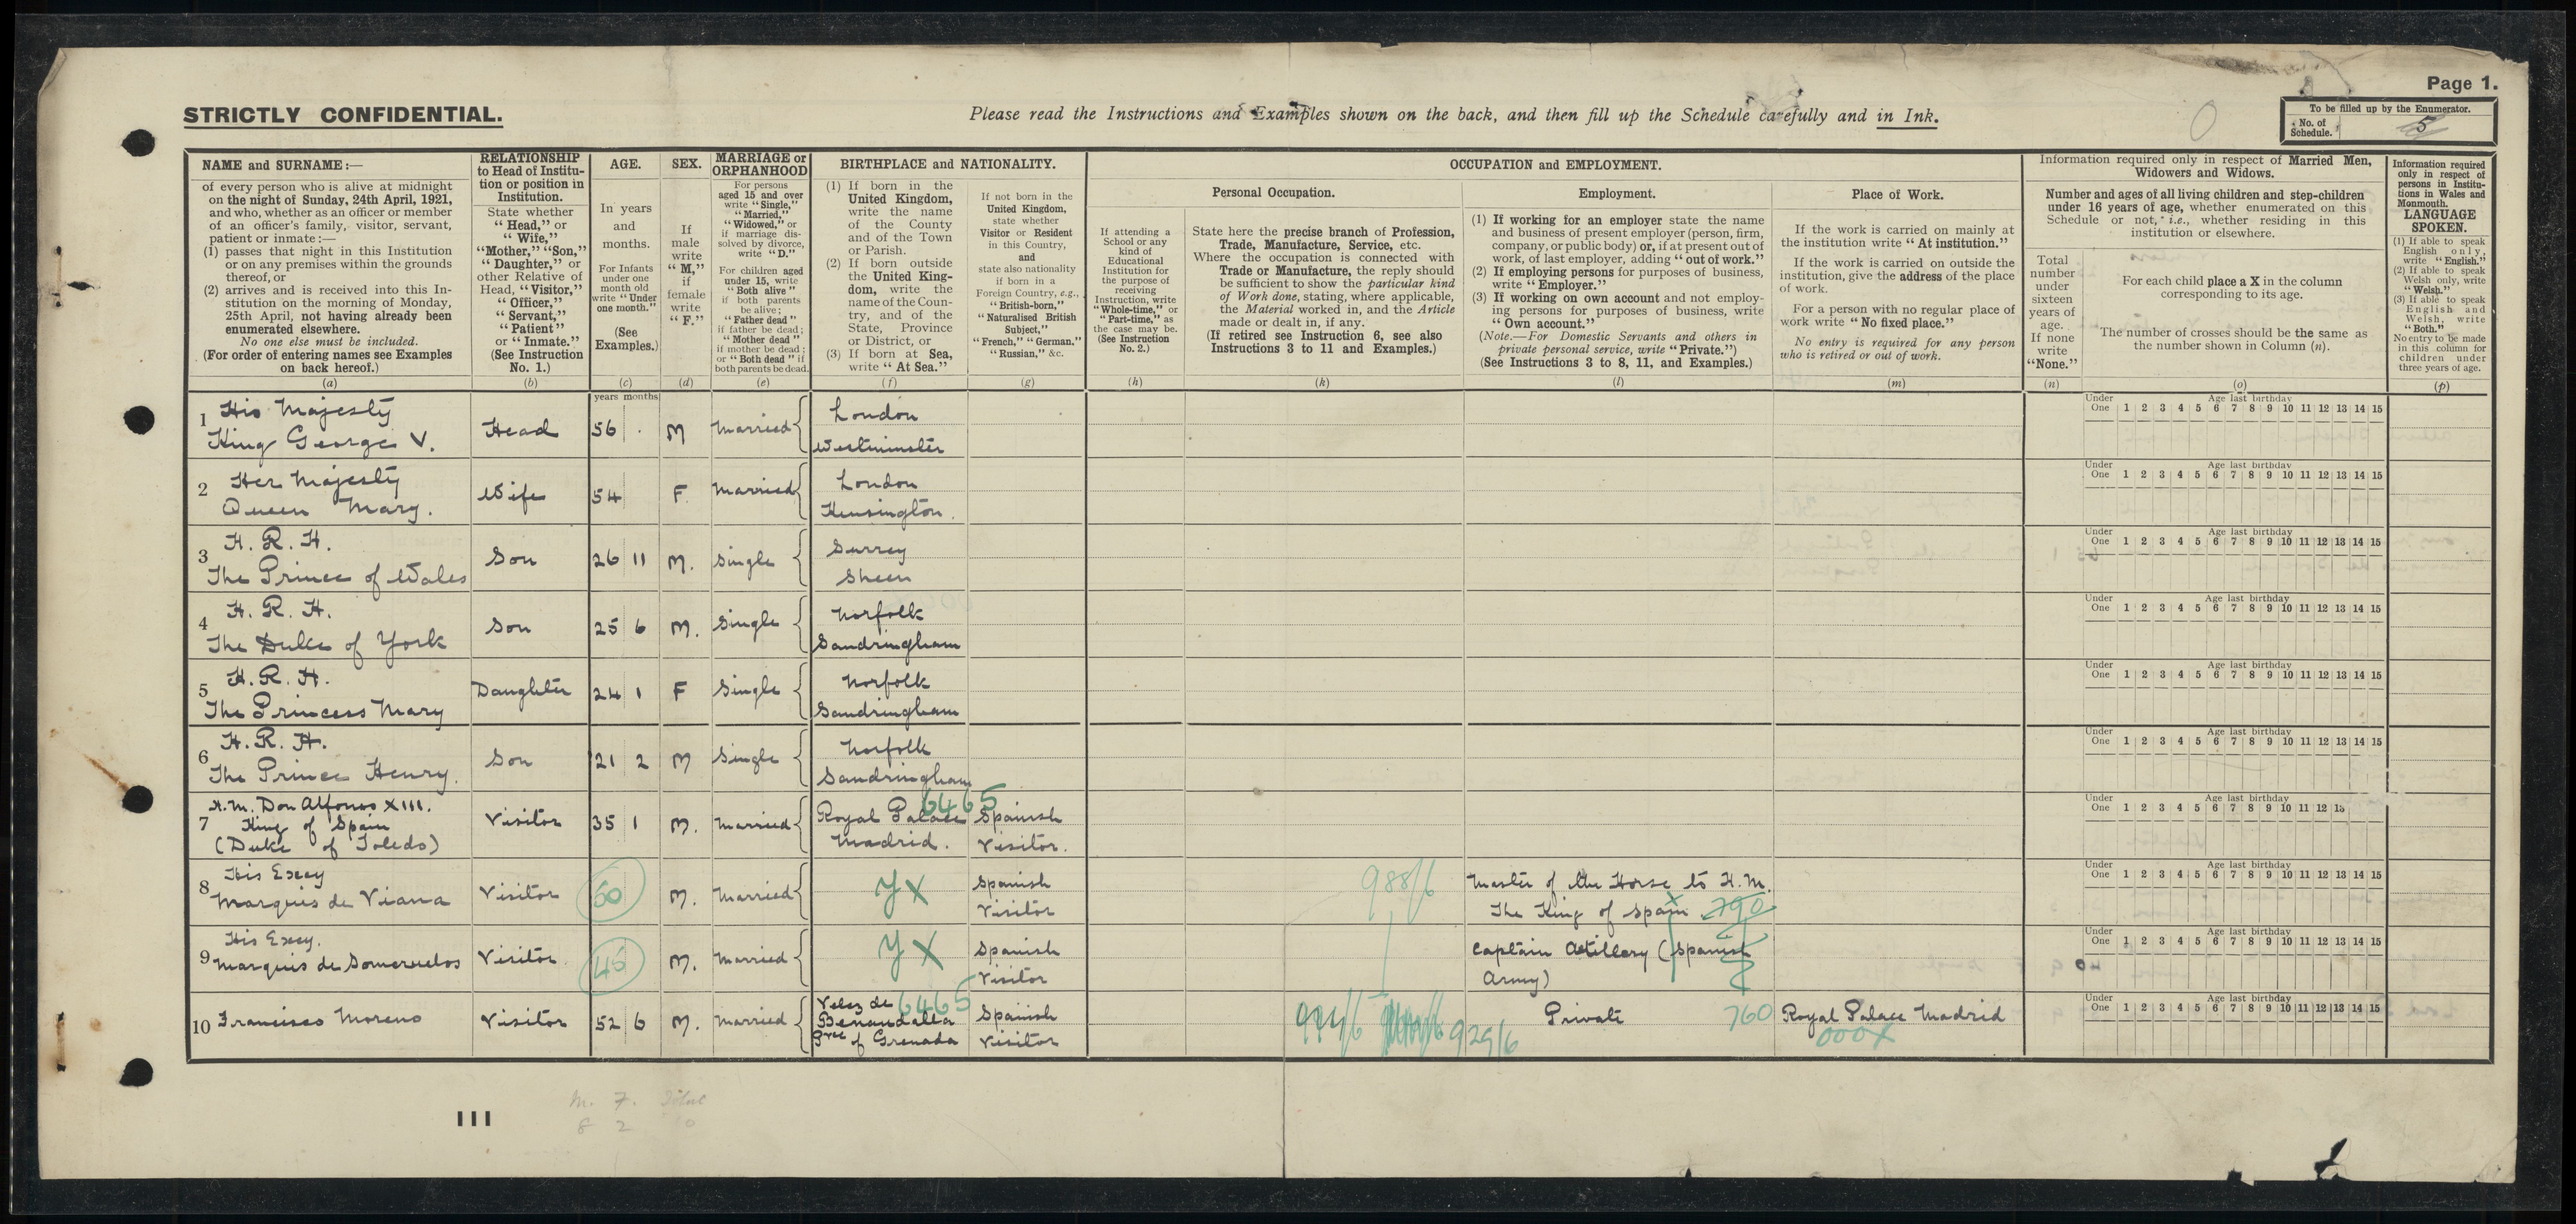 Page 1.
STRICTLY CONFIDENTIAL.
Please read the Instructions and Examples shown on the back, and then fill up the Schedule carefully and in Ink.
To be filled up by the Enumerator.
No. of Schedule.
5
NAME and SURNAME :—
of every person who is alive at midnight
on the night of Sunday, 24th April, 1921,
and who, whether as an officer or member
of an officer's family, visitor, servant,
patient or inmate :—
(1) passes that night in this Institution
or on any premises within the grounds
thereof, or
(2) arrives and is received into this In-
stitution on the morning of Monday,
25th April, not having already been
enumerated elsewhere.
No one else must be included.
(For order of entering names see Examples
on back hereof.)
(a)
RELATIONSHIP
to Head of Institu-
tion or position in
Institution.
State whether
"Head," or
"Wife,"
"Mother," "Son,"
"Daughter," or
other Relative of
Head, "Visitor,"
"Officer,"
"Servant,"
"Patient"
or "Inmate."
(See Instruction
No. 1.)
(b)
AGE.
In years
and
months.
For Infants
under one
month old
write "Under
one month."
(See
Examples.)
(c)
SEX.
If
male
write
"M,"
if
female
write
"F."
(d)
MARRIAGE or
ORPHANHOOD
For persons
aged 15 and over
write "Single,"
"Married,"
"Widowed," or
if marriage dis-
solved by divorce,
write "D."
For children aged
under 15, write
"Both alive"
if both parents
be alive;
"Father dead"
if father be dead;
"Mother dead"
if mother be dead;
or "Both dead" if
both parents be dead.
(e)
BIRTHPLACE and NATIONALITY.
(1) If born in the
United Kingdom,
write the name
of the County
and of the Town
or Parish.
(2) If born outside
the United King-
dom, write the
name of the Coun-
try, and of the
State, Province
or District, or
(3) If born at Sea,
write "At Sea."
(f)
If not born in the
United Kingdom,
state whether
Visitor or Resident
in this Country,
and
state also nationality
if born in a
Foreign Country, e.g.,
"British-born,"
"Naturalised British
Subject,"
"French," "German,"
"Russian," &c.
(g)
OCCUPATION and EMPLOYMENT.
If attending a
School or any
kind of
Educational
Institution for
the purpose of
receiving
Instruction, write
"Whole-time," or
"Part-time," as
the case may be.
(See Instruction
No. 2.)
(h)
Personal Occupation.
State here the precise branch of Profession,
Trade, Manufacture, Service, etc.
Where the occupation is connected with
Trade or Manufacture, the reply should
be sufficient to show the particular kind
of Work done, stating, where applicable,
the Material worked in, and the Article
made or dealt in, if any.
(If retired see Instruction 6, see also
Instructions 3 to 11 and Examples.)
(k)
Employment.
(1) If working for an employer state the name
and business of present employer (person, firm,
company, or public body) or, if at present out of
work, of last employer, adding "out of work."
(2) If employing persons for purposes of business,
write "Employer."
(3) If working on own account and not employ-
ing persons for purposes of business, write
"Own account."
(Note.—For Domestic Servants and others in
private personal service, write "Private.")
(See Instructions 3 to 8, 11, and Examples.)
(l)
Place of Work.
If the work is carried on mainly at
the institution write "At institution."
If the work is carried on outside the
institution, give the address of the place
of work.
For a person with no regular place of
work write "No fixed place."
No entry is required for any person
who is retired or out of work.
(m)
Information required only in respect of Married Men,
Widowers and Widows.
Number and ages of all living children and step-children
under 16 years of age, whether enumerated on this
Schedule or not, i.e., whether residing in this
institution or elsewhere.
Total
number
under
sixteen
years of
age.
If none
write
"None."
(n)
For each child place a X in the column
corresponding to its age.
The number of crosses should be the same as
the number shown in Column (n).
(o)
Information required
only in respect of
persons in Institu-
tions in Wales and
Monmouth.
LANGUAGE
SPOKEN.
(1) If able to speak
English only,
write "English."
(2) If able to speak
Welsh only, write
"Welsh."
(3) If able to speak
English and
Welsh, write
"Both."
No entry to be made
in this column for
children under
three years of age.
(p)
years months
1 His Majesty King George V. Head 56 M Married London Westminster
Under One Age last birthday 1 2 3 4 5 6 7 8 9 10 11 12 13 14 15
2 Her Majesty Queen Mary. Wife 54 F. Married London Kensington.
Under One Age last birthday 1 2 3 4 5 6 7 8 9 10 11 12 13 14 15
3 H. R. H. The Prince of Wales Son 26 11 M. Single Surrey Sheen
Under One Age last birthday 1 2 3 4 5 6 7 8 9 10 11 12 13 14 15
4 H. R. H. The Duke of York Son 25 6 M. Single Norfolk Sandringham
Under One Age last birthday 1 2 3 4 5 6 7 8 9 10 11 12 13 14 15
5 H. R. H. The Princess Mary Daughter 24 1 F Single Norfolk Sandringham
Under One Age last birthday 1 2 3 4 5 6 7 8 9 10 11 12 13 14 15
6 H. R. H. The Prince Henry. Son 21 2 M Single Norfolk Sandringham
Under One Age last birthday 1 2 3 4 5 6 7 8 9 10 11 12 13 14 15
7 H. M. Don Alfonso XIII. King of Spain (Duke of Toledo) Visitor 35 1 M. Married Royal Palace Madrid. 6465 Spanish Visitor.
Under One Age last birthday 1 2 3 4 5 6 7 8 9 10 11 12 13
8 His Excy Marquis de Viana Visitor 50 M. Married y X Spanish Visitor 988/6 Master of the Horse to H. M. The King of Spain 790
Under One Age last birthday 1 2 3 4 5 6 7 8 9 10 11 12 13 14 15
9 His Excy. Marquis de Someruelos Visitor 45 M. Married y X Spanish Visitor Captain Artillery (Spanish Army)
Under One Age last birthday 1 2 3 4 5 6 7 8 9 10 11 12 13 14 15
10 Francisco Moreno Visitor 52 6 M. Married Velez de Benaudalla Pvce of Grenada 6465 Spanish Visitor 929/6 Private 760 Royal Palace Madrid 000X
Under One Age last birthday 1 2 3 4 5 6 7 8 9 10 11 12 13 14 15
M. F. Total
8 2